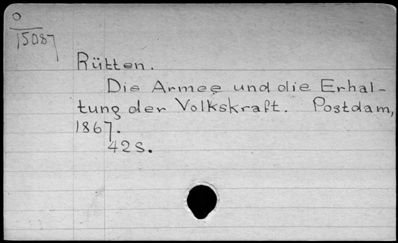 O
15087
Rütten.
Die Armee und die Erhal-
tung der Volkskraft. Postdam,
1867.
42 S.